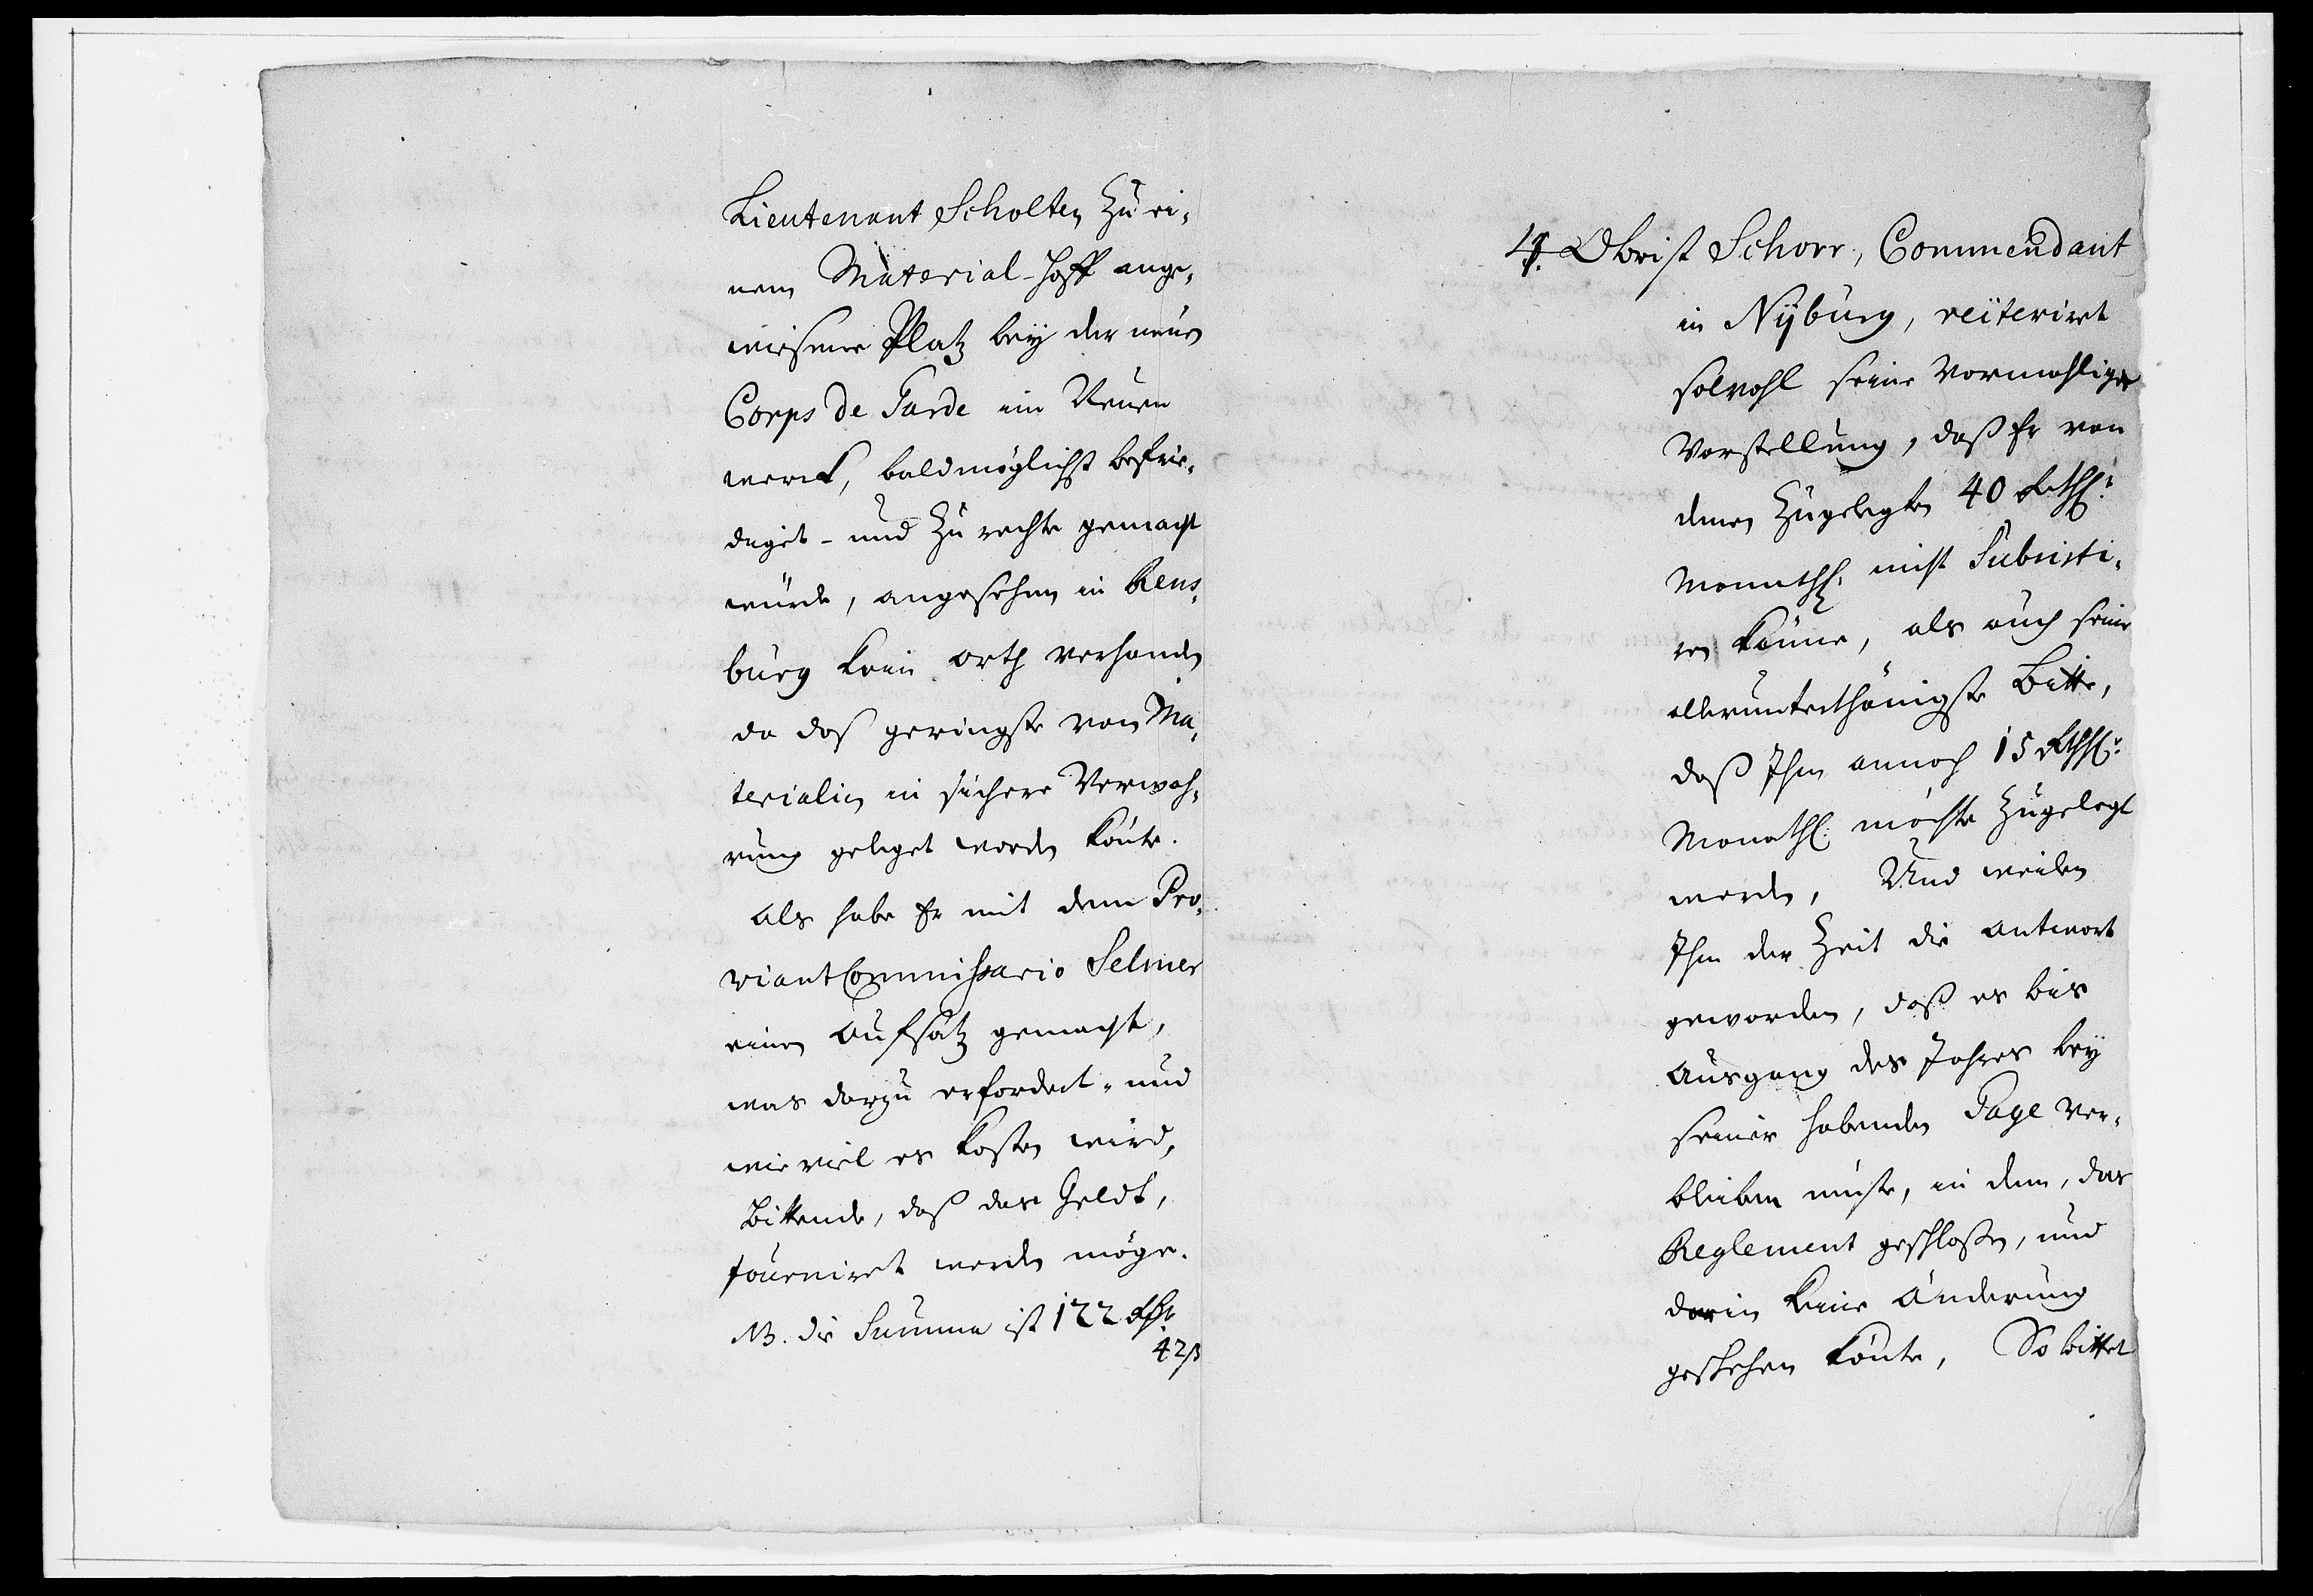 Lieutenant Scholten zu ei-
nem Material-Hoff ange-
wiesener Platz bey der neuen
Corps de Garde im Neuen
werck, baldmöglichst befrie-
diget- und zu rechte gemacht
würde, angesehen in Rens-
burg kein orth verhanden
da daß geringste von Ma-
terialien in sichere Verwah-
rung geleget werden könte.
Als habe Er mit dem Pro-
viantCommissario Selmer
einen Aufsatz gemacht,
was darzu erfordert- und
wie viel es kosten wird,
Bittende, daß das Geldt,
fourniret werden möge.
NB. die Summa ist 122 Rthr
42ß
4. Obrist Schorr, Commendant
in Nyburg, reiteriret
sowohl seine Vormahlige
Vorstellung, daß Er von
denen Zugelegten 40 Rthl:
Monathl: nicht Subsisti-
ren könne, als auch seine
allerunterthänigste Bitte,
daß Ihm annoch 15 Rthlr:
Monathl: möchte Zugelegt
werden, Und weilen
Ihm der Zeit die antwort
geworden, daß es bis
Ausgang des Jahres bey
seiner habenden Gage ver-
bleiben müste, in dem, das
Reglement geschloßen, und
darin keine Änderung
geschehen könte, So bittet